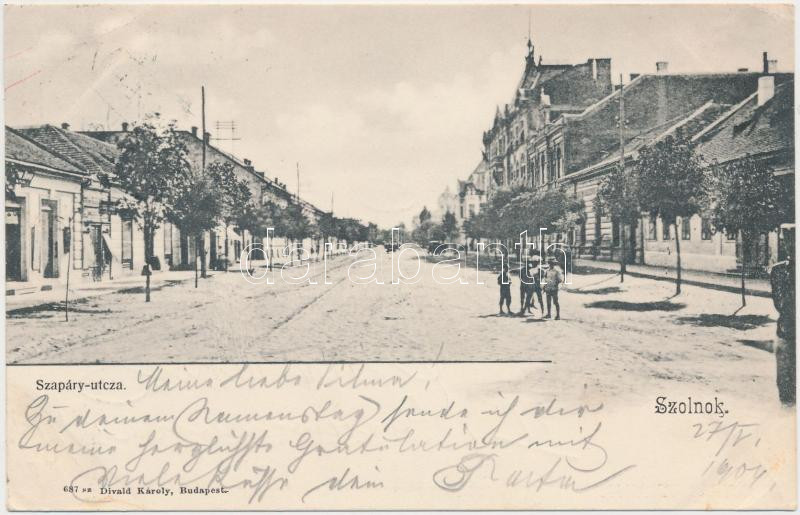 darabanth
Szapáry-utcza.
Meine liebe Vilma!
Szolnok.
Zu deinem Namenstag sende ich dir
meine herzlichste Gratulation mit
27/V.
Viele Küsse dein
1904.
687 sz Divald Károly, Budapest.